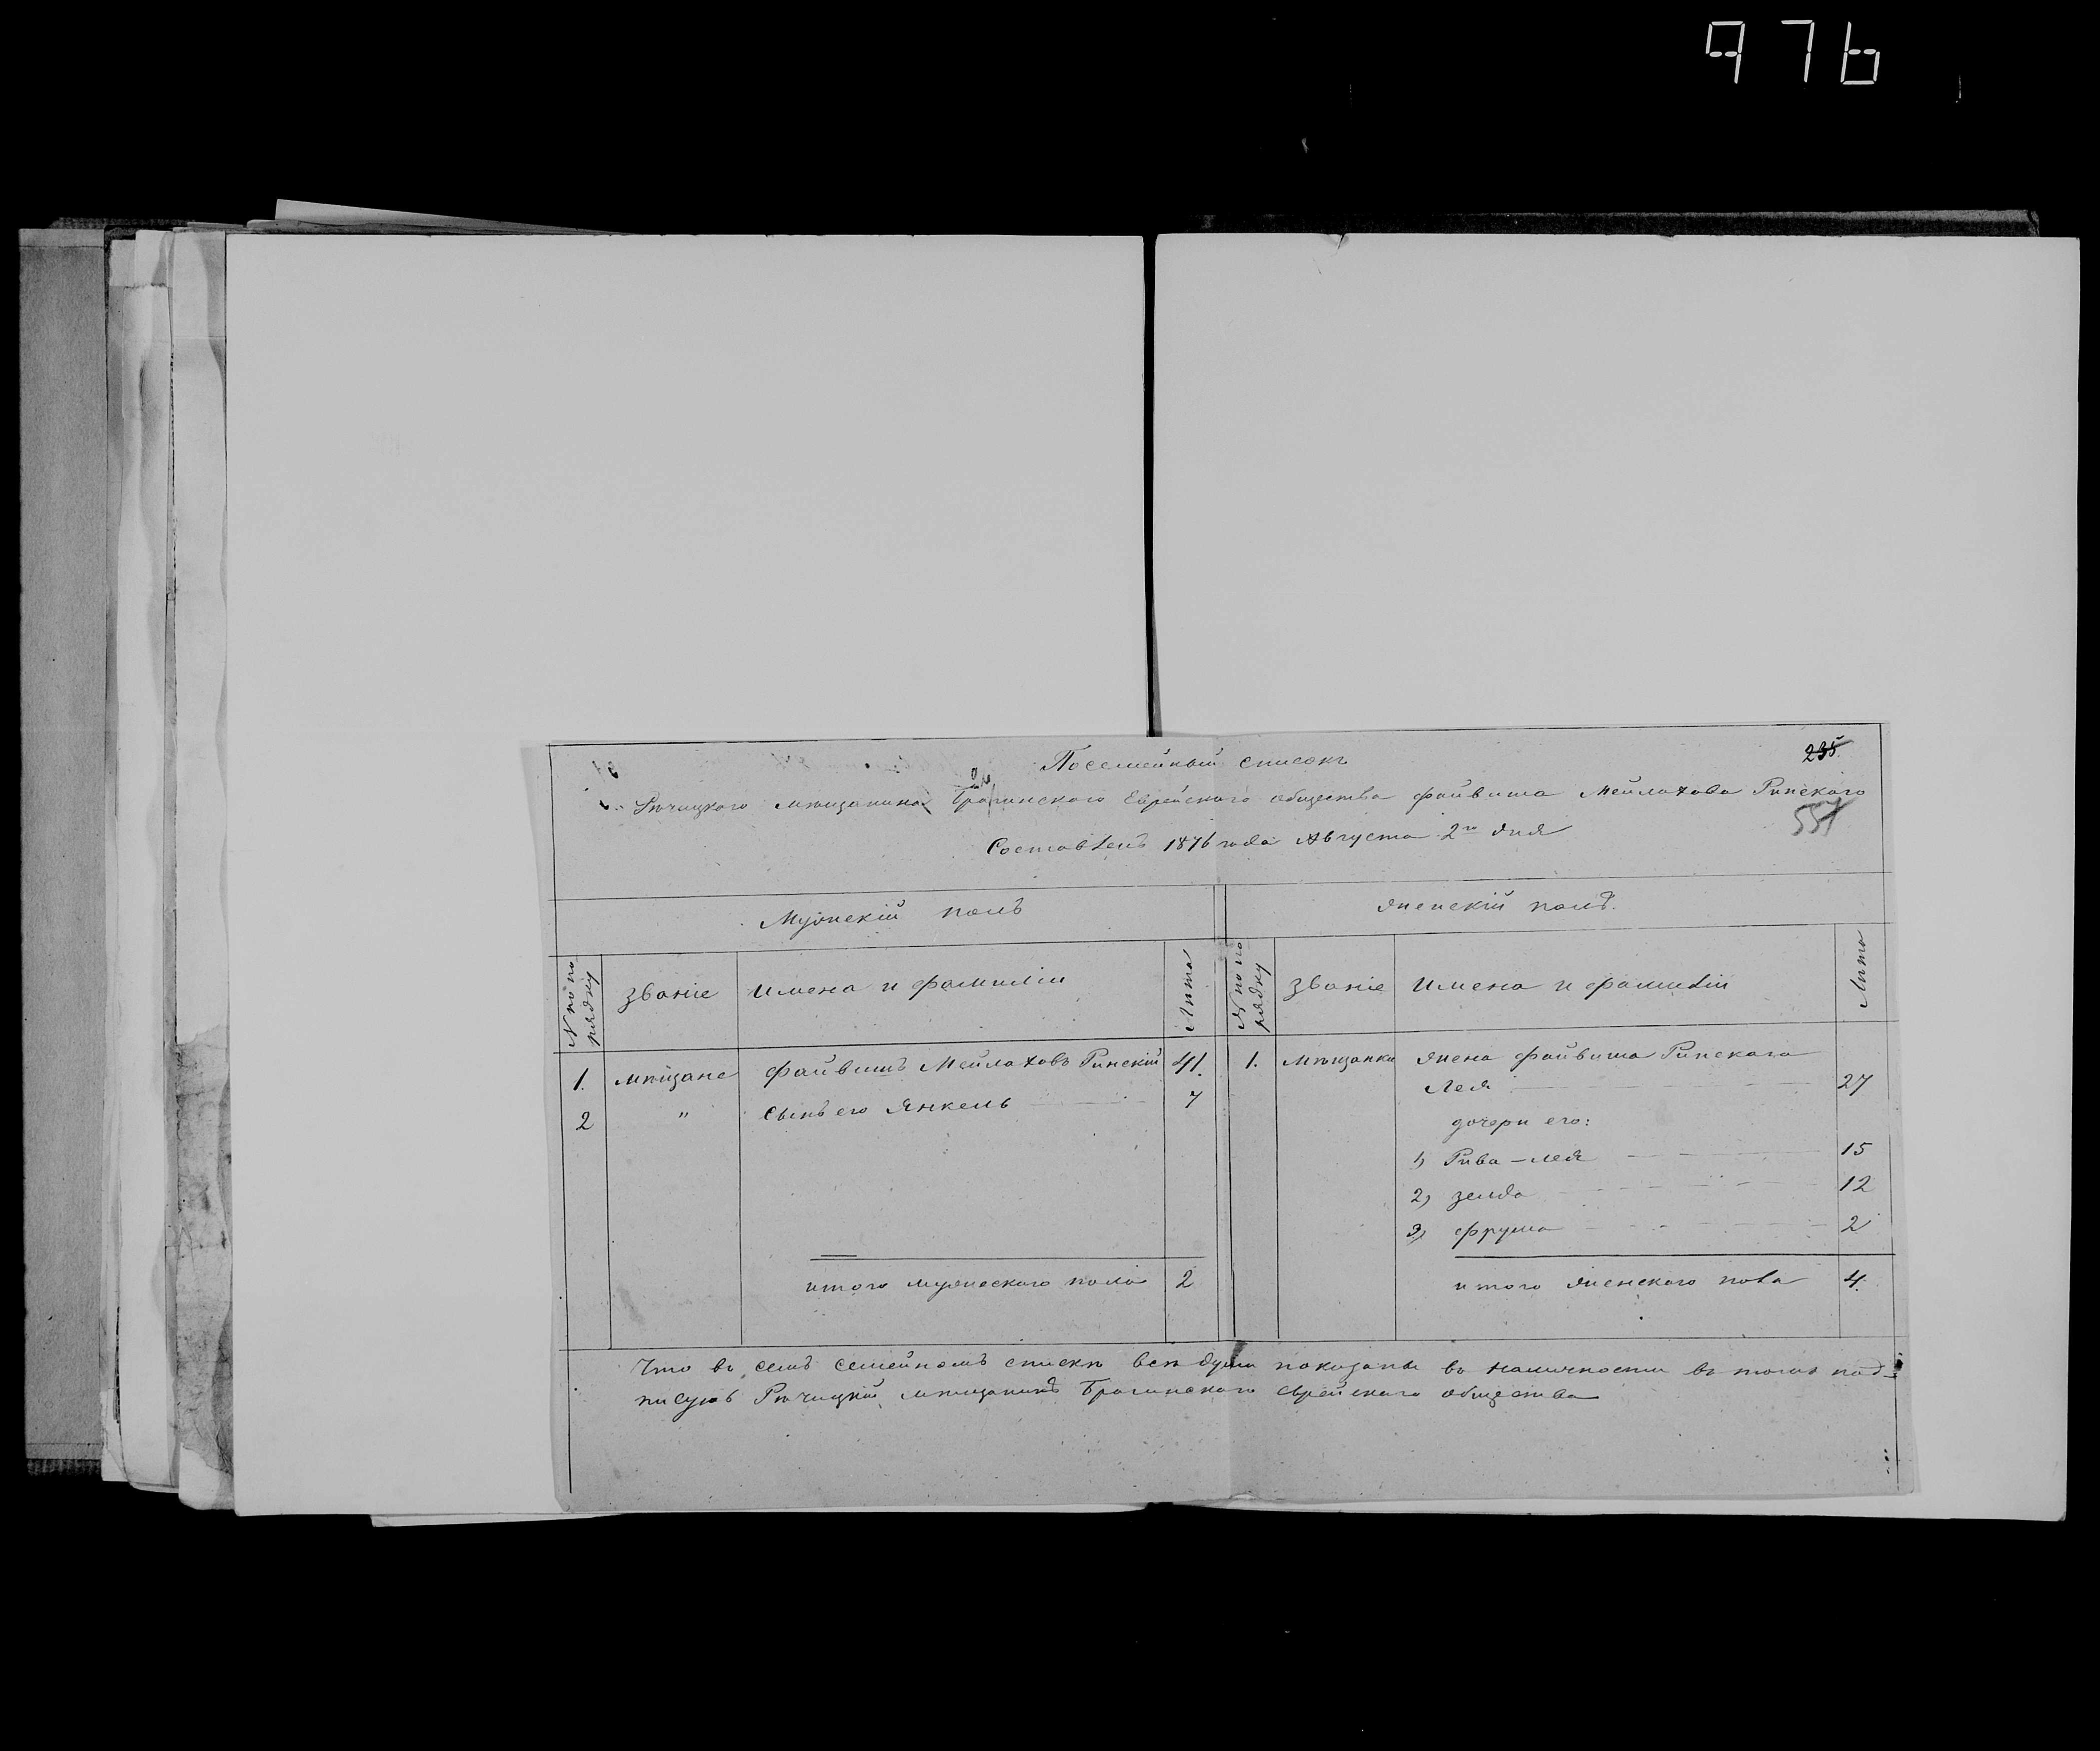 976
Посемейный списокъ
235
Рѣчицкого мѣщанина Брагинского Еврейского общества Файвиша Мейлахова Ринского
557
Составленъ 1876 года Августа 2го дня
Мужскій полъ
Женскій полъ.
N по по рядку
званіе
Имена и фамиліи
Лѣта
N по по рядку
званіе
Имена и фамиліи
Лѣта
1. мѣщане Файвишъ Мейлаховъ Ринскій 41.
2 " Сынъ его Янкель 7
1. мѣщанка Жена Файвиша Ринскаго
Лея 27
дочери его:
1) Рива-Лея 15
2) Зелда 12
3) Фрума 2
итого мужескаго пола 2
итого женскаго пола 4.
Что въ семъ семейномъ спискѣ всѣ души показаны въ наличности въ томъ под-
писуюсь Рѣчицкій мѣщанинъ Брагинскаго Еврейскаго общества